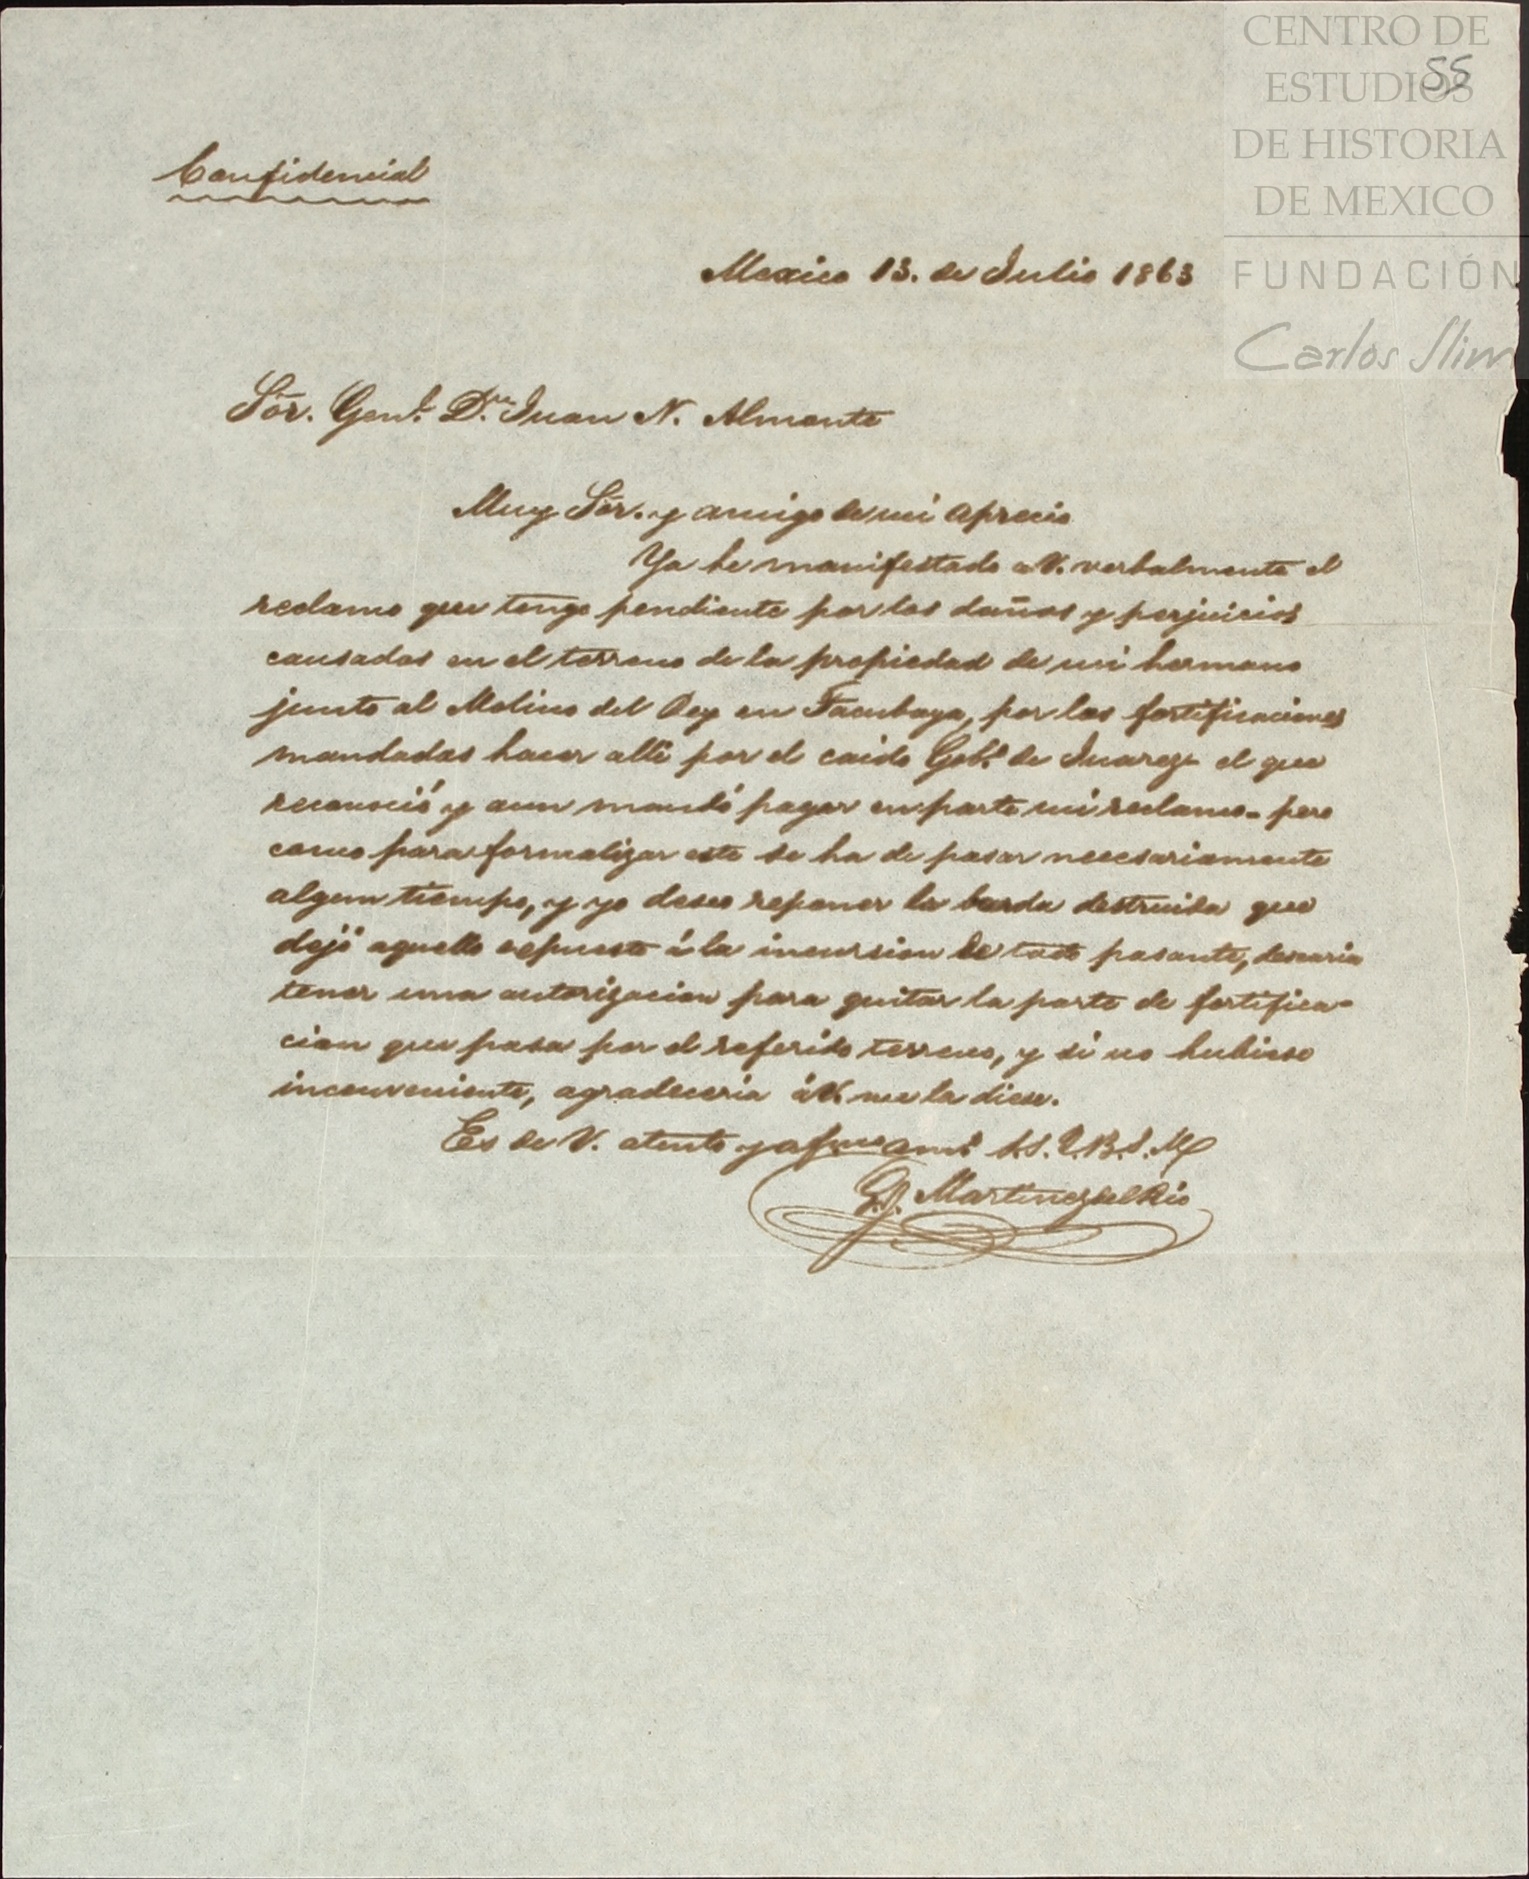 CENTRO DE
ESTUDIOS
DE HISTORIA
DE MEXICO
FUNDACIÓN
Carlos Slim
55
Confidencial
Mexico 13. de Julio 1863
Sõr. Genl. Dn. Juan N. Almonte
Muy Sõr. y amigo de mi aprecio
Ya he manifestado a V. verbalmente el
reclamo que tengo pendiente por los daños y perjuicios
causados en el terreno de la propiedad de mi hermano
junto al Molino del Rey en Tacubaya, por las fortificaciones
mandadas hacer alli por el caido Gobo. de Juarez el que
reconoció y aun mandó pagar en parte mi reclamo. pero
como para formalizar este se ha de pasar necesariamente
algun tiempo, y yo deseo reponer la barda destruida que
dejó aquello espuesto á la incursion de todo pasante, desearia
tener una autorizacion para quitar la parte de fortifica-
cion que pasa por el referido terreno, y si no hubiese
inconveniente, agradeceria á V. me la diese.
Es de V. atento y afmo amo. S.S. Q.B.S.M
Martinez del Rio